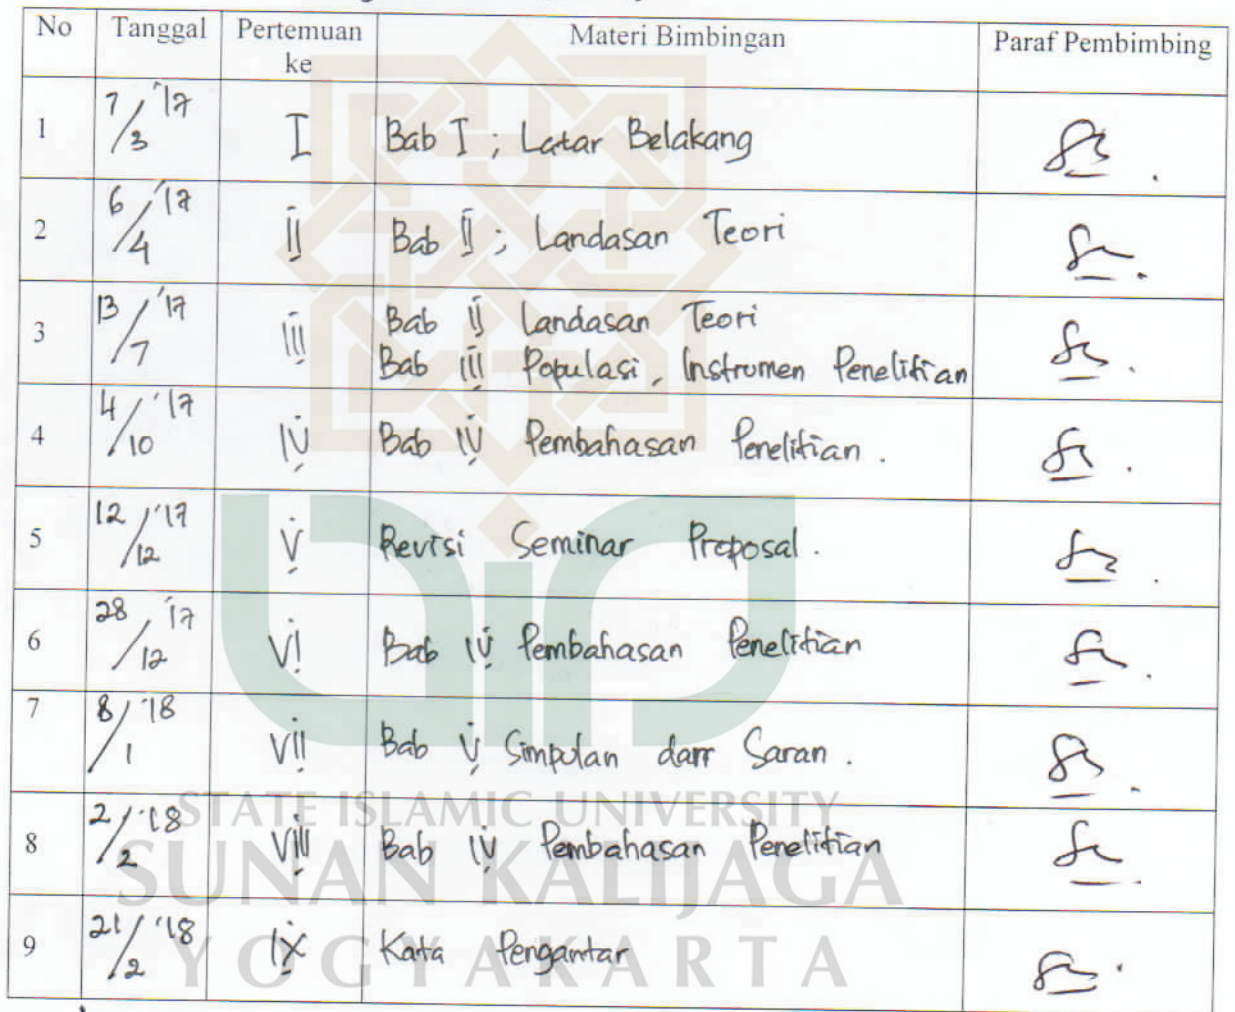 No Tanggal Pertemuan ke Materi Bimbingan Paraf Pembimbing
1 7/3 '17 I Bab I ; Latar Belakang
2 6/4 '17 II Bab II ; Landasan Teori
3 13/7 '17 III Bab II Landasan Teori
Bab III Populasi, Instrumen Penelitian
4 4/10 '17 IV Bab IV Pembahasan Penelitian.
5 12/12 '17 V Revisi Seminar Proposal.
6 28/12 '17 VI Bab IV Pembahasan Penelitian
7 8/1 '18 VII Bab V Simpulan dan Saran.
8 2/2 '18 VIII Bab IV Pembahasan Penelitian
9 21/2 '18 IX Kata Pengantar
STATE ISLAMIC UNIVERSITY
SUNAN KALIJAGA
YOGYAKARTA